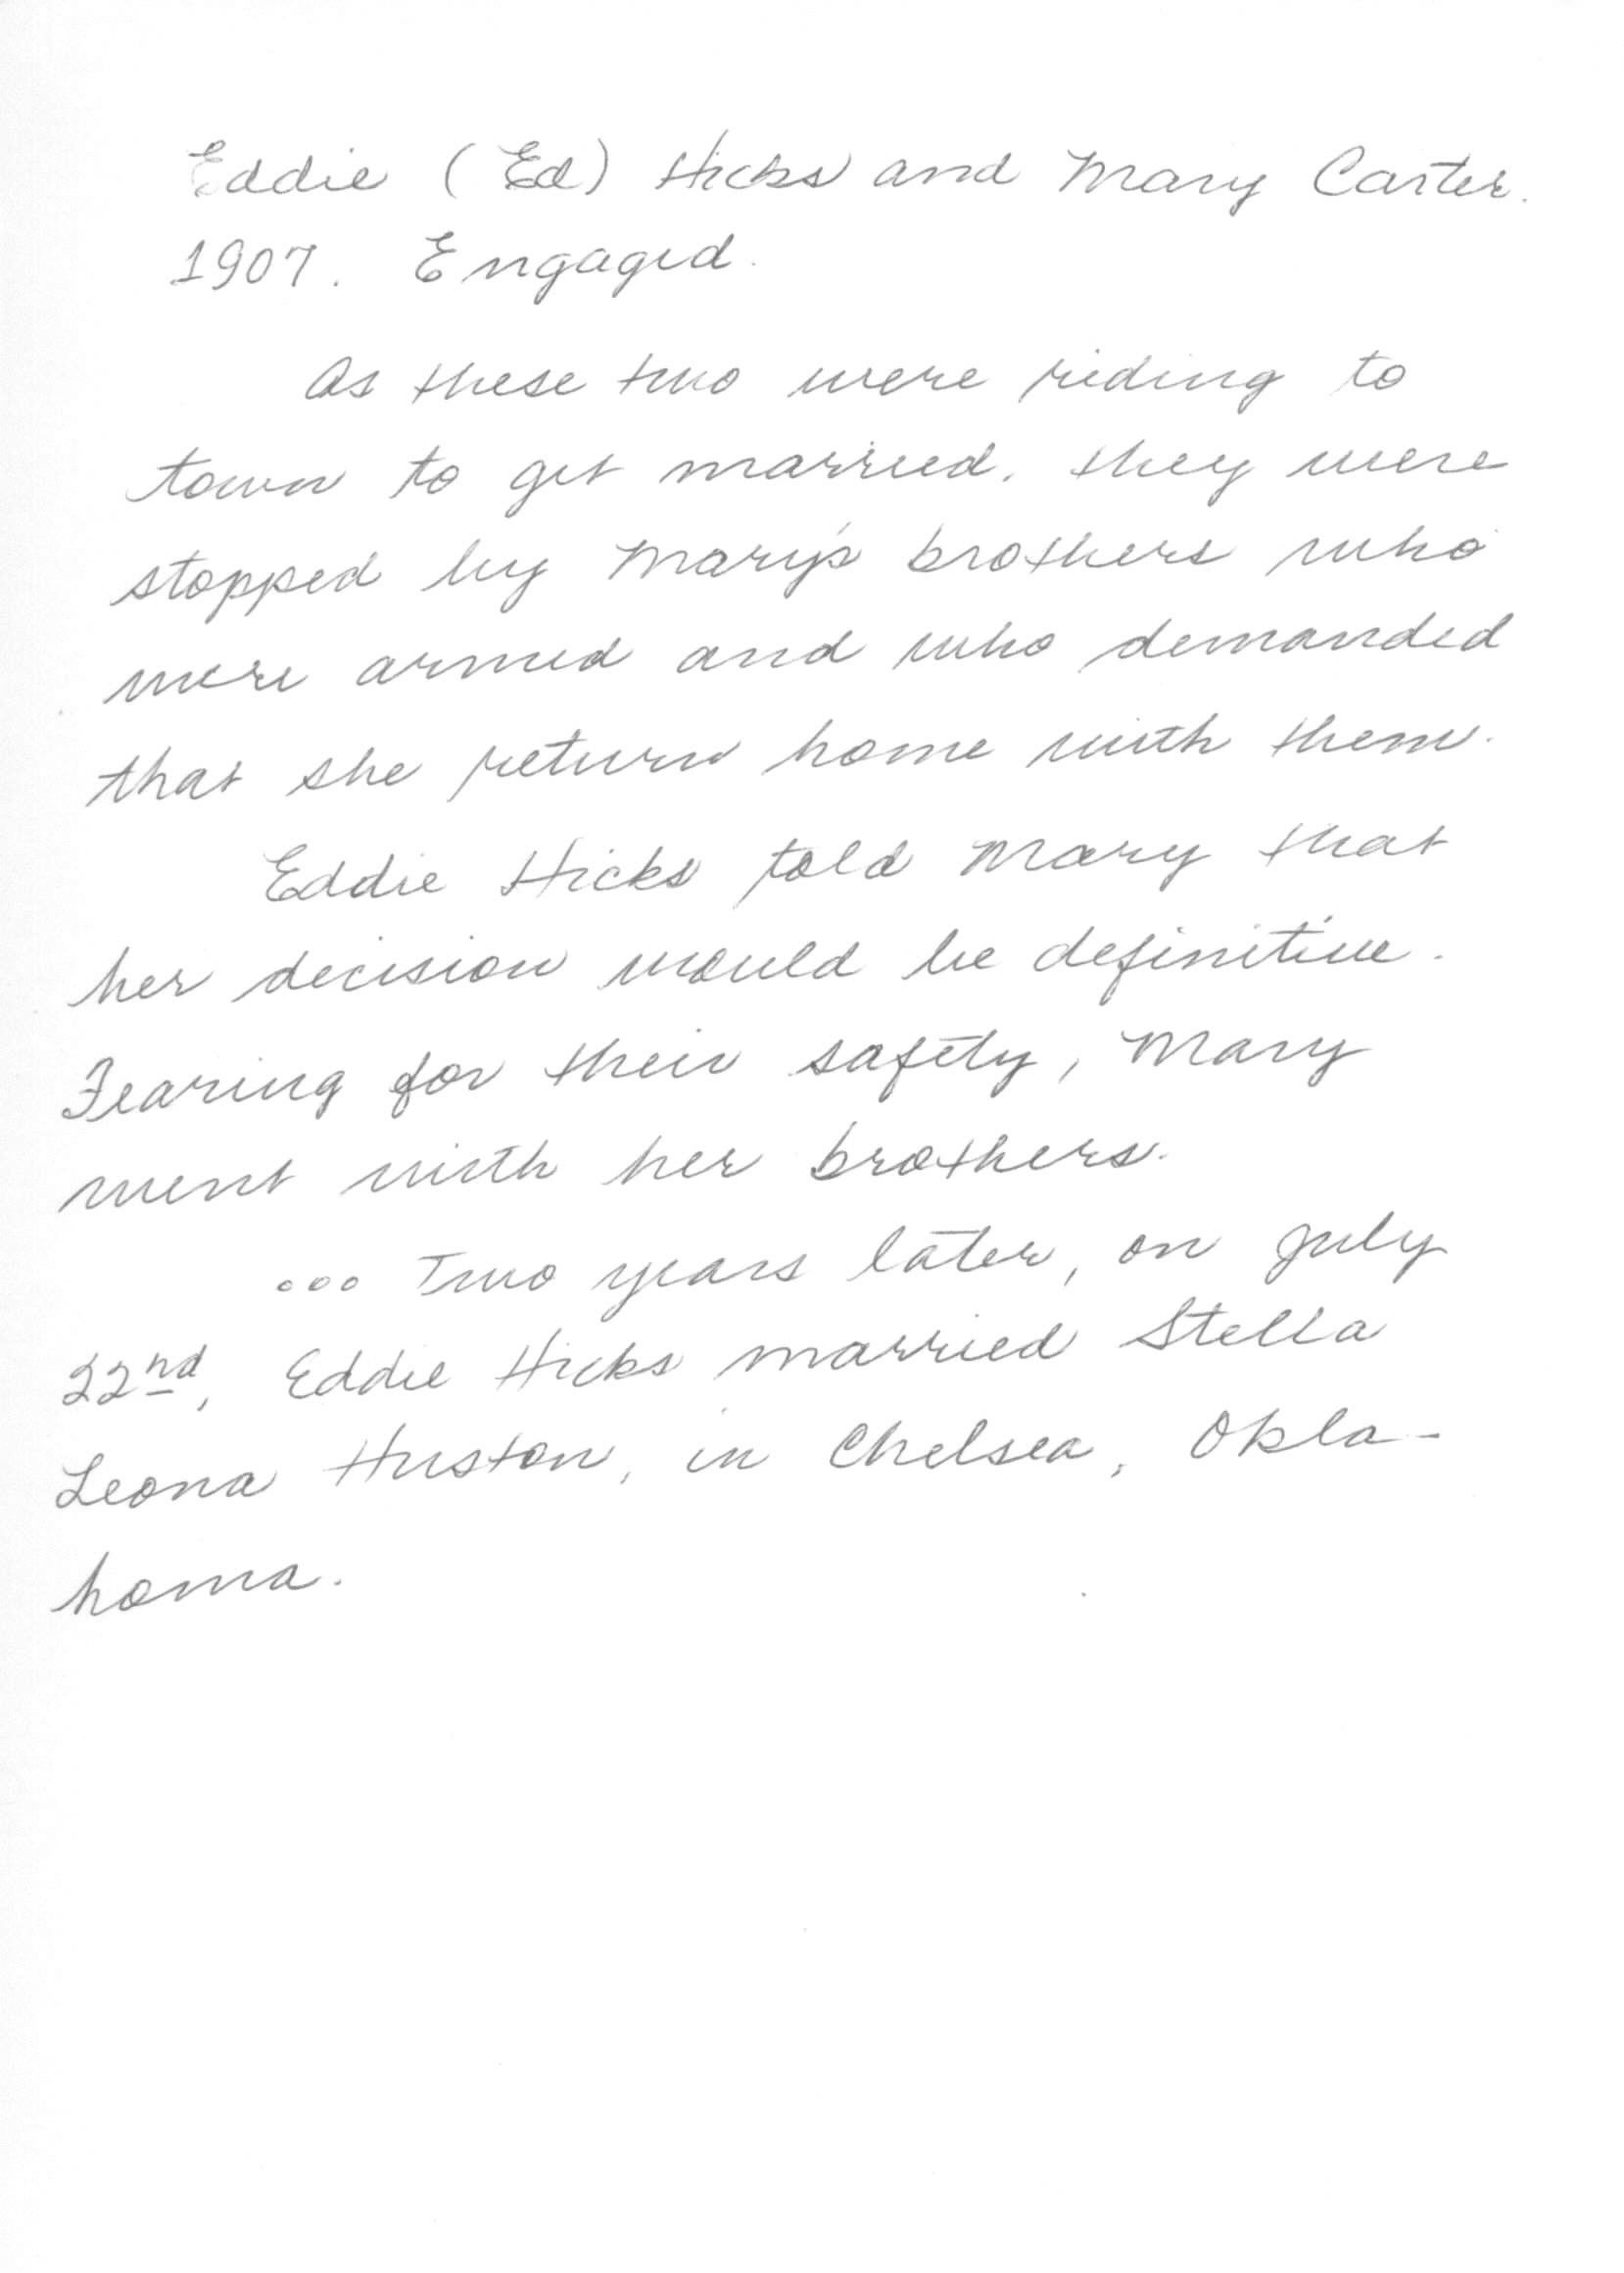 Eddie (Ed) Hicks and Mary Carter.
1907. Engaged.
As these two were riding to
town to get married, they were
stopped by Mary's brothers who
were armed and who demanded
that she return home with them.
Eddie Hicks told Mary that
her decision would be definitive.
Fearing for their safety, Mary
went with her brothers.
... Two years later, on July
22nd, Eddie Hicks married Stella
Leona Huston, in Chelsea, Okla-
homa.